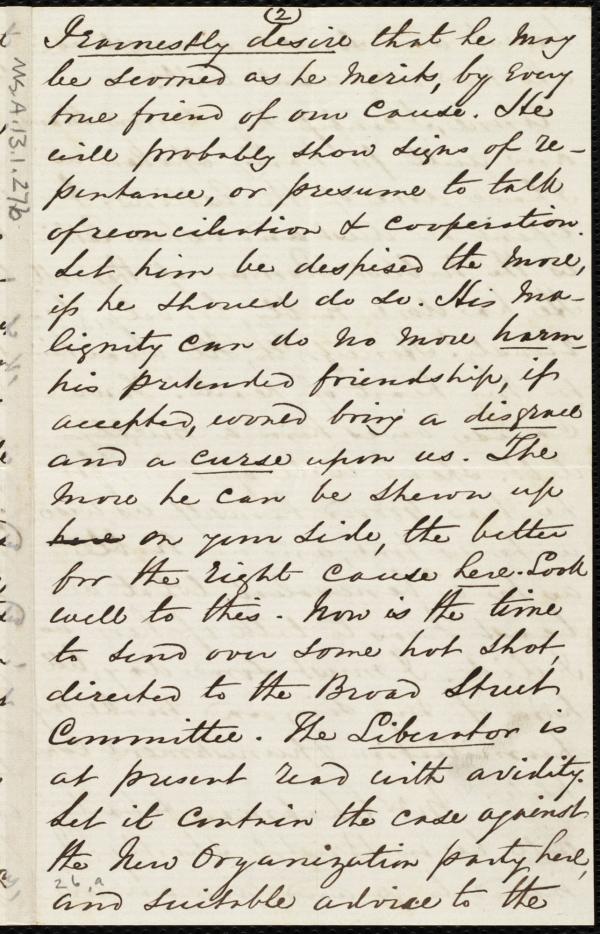 (2)
I earnestly desire that he may
be scorned as he merits, by every
true friend of our cause. He
will probably show signs of re-
pentance, or presume to talk
of reconciliation & cooperation.
Let him be despised the more,
if he should do so. His ma-
lignity can do no more harm -
his pretended friendship, if
accepted, would bring a disgrace
and a curse upon us. The
more he can be shewn up
here on your side, the better
for the right cause here. Look
well to this. Now is the time
to send over some hot shot,
directed to the Broad Street
Committee. The Liberator is
at present read with avidity.
Let it contain the case against
the New Organization party here,
and suitable advice to the
Ms.A.1.3.1.27b
26, a